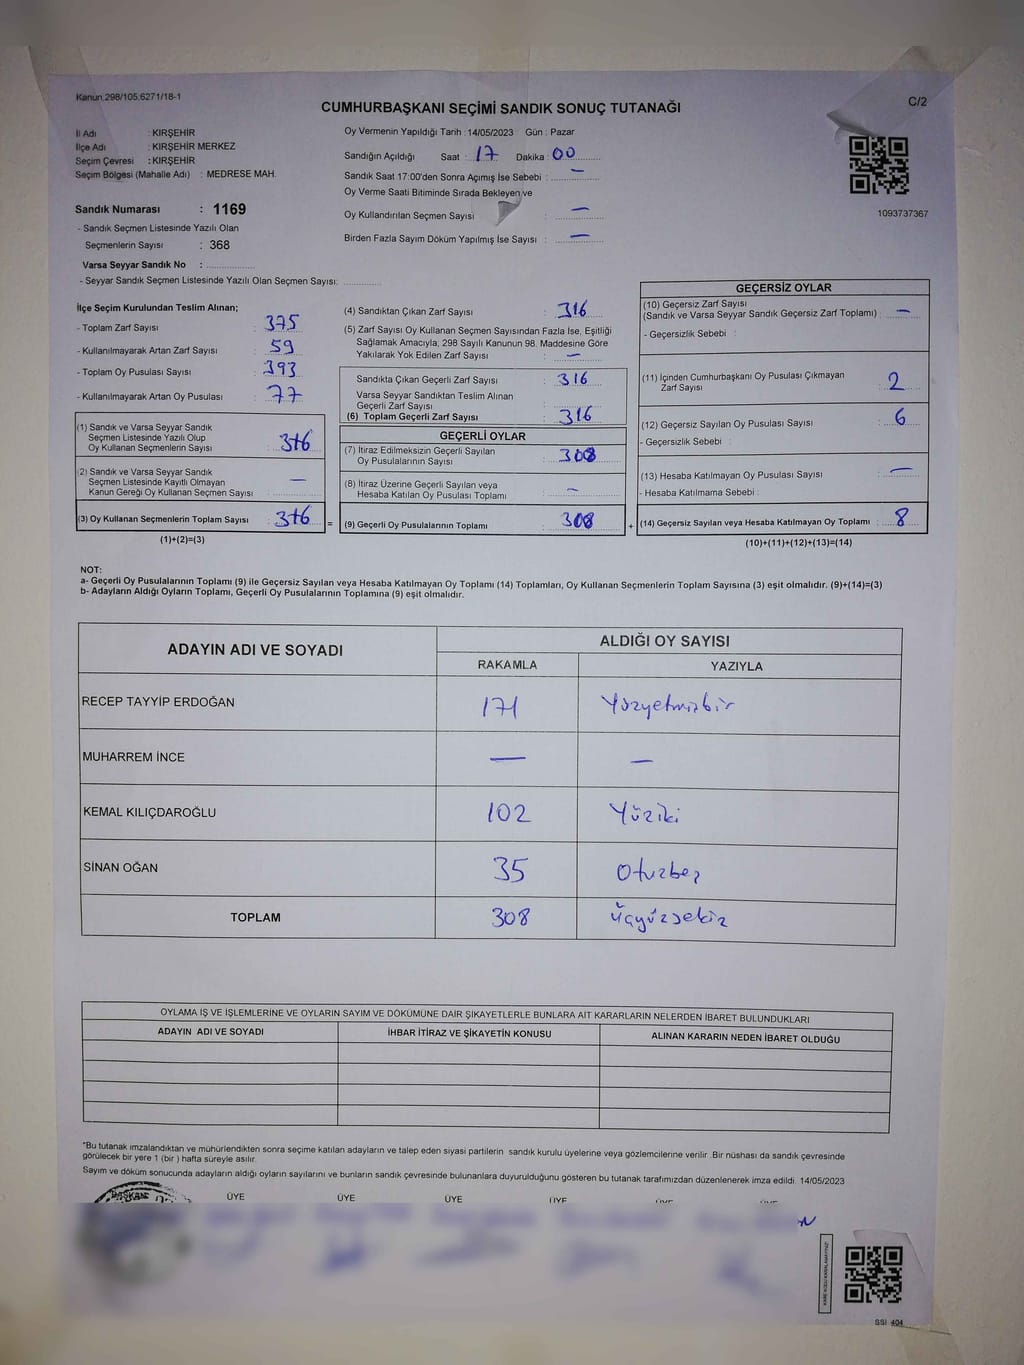 Kanun.298/105,6271/18-1
C/2
CUMHURBAŞKANI SEÇİMİ SANDIK SONUÇ TUTANAĞI
İl Adı : KIRŞEHİR
İlçe Adı : KIRŞEHİR MERKEZ
Seçim Çevresi : KIRŞEHİR
Seçim Bölgesi (Mahalle Adı) : MEDRESE MAH.
Sandık Numarası : 1169
- Sandık Seçmen Listesinde Yazılı Olan
Seçmenlerin Sayısı : 368
Varsa Seyyar Sandık No :
- Seyyar Sandık Seçmen Listesinde Yazılı Olan Seçmen Sayısı:
Oy Vermenin Yapıldığı Tarih : 14/05/2023 Gün : Pazar
Sandığın Açıldığı Saat : 17 Dakika : 00
Sandık Saat 17:00'den Sonra Açımış İse Sebebi : —
Oy Verme Saati Bitiminde Sırada Bekleyen ve
Oy Kullandırılan Seçmen Sayısı : —
Birden Fazla Sayım Döküm Yapılmış İse Sayısı : —
1093737367
İlçe Seçim Kurulundan Teslim Alınan;
- Toplam Zarf Sayısı : 375
- Kullanılmayarak Artan Zarf Sayısı : 59
- Toplam Oy Pusulası Sayısı : 393
- Kullanılmayarak Artan Oy Pusulası : 77
(1) Sandık ve Varsa Seyyar Sandık
Seçmen Listesinde Yazılı Olup
Oy Kullanan Seçmenlerin Sayısı : 316
(2) Sandık ve Varsa Seyyar Sandık
Seçmen Listesinde Kayıtlı Olmayan
Kanun Gereği Oy Kullanan Seçmen Sayısı : —
(3) Oy Kullanan Seçmenlerin Toplam Sayısı : 316
(1)+(2)=(3)
=
(4) Sandıktan Çıkan Zarf Sayısı : 316
(5) Zarf Sayısı Oy Kullanan Seçmen Sayısından Fazla İse, Eşitliği
Sağlamak Amacıyla, 298 Sayılı Kanunun 98. Maddesine Göre
Yakılarak Yok Edilen Zarf Sayısı : —
Sandıkta Çıkan Geçerli Zarf Sayısı : 316
Varsa Seyyar Sandıktan Teslim Alınan
Geçerli Zarf Sayısı :
(6) Toplam Geçerli Zarf Sayısı : 316
GEÇERLİ OYLAR
(7) İtiraz Edilmeksizin Geçerli Sayılan
Oy Pusulalarının Sayısı : 308
(8) İtiraz Üzerine Geçerli Sayılan veya
Hesaba Katılan Oy Pusulası Toplamı : —
(9) Geçerli Oy Pusulalarının Toplamı : 308
+
GEÇERSİZ OYLAR
(10) Geçersiz Zarf Sayısı
(Sandık ve Varsa Seyyar Sandık Geçersiz Zarf Toplamı) : —
- Geçersizlik Sebebi :
(11) İçinden Cumhurbaşkanı Oy Pusulası Çıkmayan
Zarf Sayısı : 2
(12) Geçersiz Sayılan Oy Pusulası Sayısı : 6
- Geçersizlik Sebebi :
(13) Hesaba Katılmayan Oy Pusulası Sayısı : —
- Hesaba Katılmama Sebebi :
(14) Geçersiz Sayılan veya Hesaba Katılmayan Oy Toplamı : 8
(10)+(11)+(12)+(13)=(14)
NOT:
a- Geçerli Oy Pusulalarının Toplamı (9) ile Geçersiz Sayılan veya Hesaba Katılmayan Oy Toplamı (14) Toplamları, Oy Kullanan Seçmenlerin Toplam Sayısına (3) eşit olmalıdır. (9)+(14)=(3)
b- Adayların Aldığı Oyların Toplamı, Geçerli Oy Pusulalarının Toplamına (9) eşit olmalıdır.
ADAYIN ADI VE SOYADI
ALDIĞI OY SAYISI
RAKAMLA YAZIYLA
RECEP TAYYİP ERDOĞAN 171 Yüzyetmişbir
MUHARREM İNCE — —
KEMAL KILIÇDAROĞLU 102 Yüziki
SİNAN OĞAN 35 Otuzbeş
TOPLAM 308 üçyüzsekiz
OYLAMA İŞ VE İŞLEMLERİNE VE OYLARIN SAYIM VE DÖKÜMÜNE DAİR ŞİKAYETLERLE BUNLARA AİT KARARLARIN NELERDEN İBARET BULUNDUKLARI
ADAYIN ADI VE SOYADI İHBAR İTİRAZ VE ŞİKAYETİN KONUSU ALINAN KARARIN NEDEN İBARET OLDUĞU
"Bu tutanak imzalandıktan ve mühürlendikten sonra seçime katılan adayların ve talep eden siyasi partilerin sandık kurulu üyelerine veya gözlemcilerine verilir. Bir nüshası da sandık çevresinde
görülecek bir yere 1 (bir) hafta süreyle asılır.
Sayım ve döküm sonucunda adayların aldığı oyların sayılarını ve bunların sandık çevresinde bulunanlara duyurulduğunu gösteren bu tutanak tarafımızdan düzenlenerek imza edildi. 14/05/2023
BAŞKAN ÜYE ÜYE ÜYE ÜYE ÜYE ÜYE
SSI 404